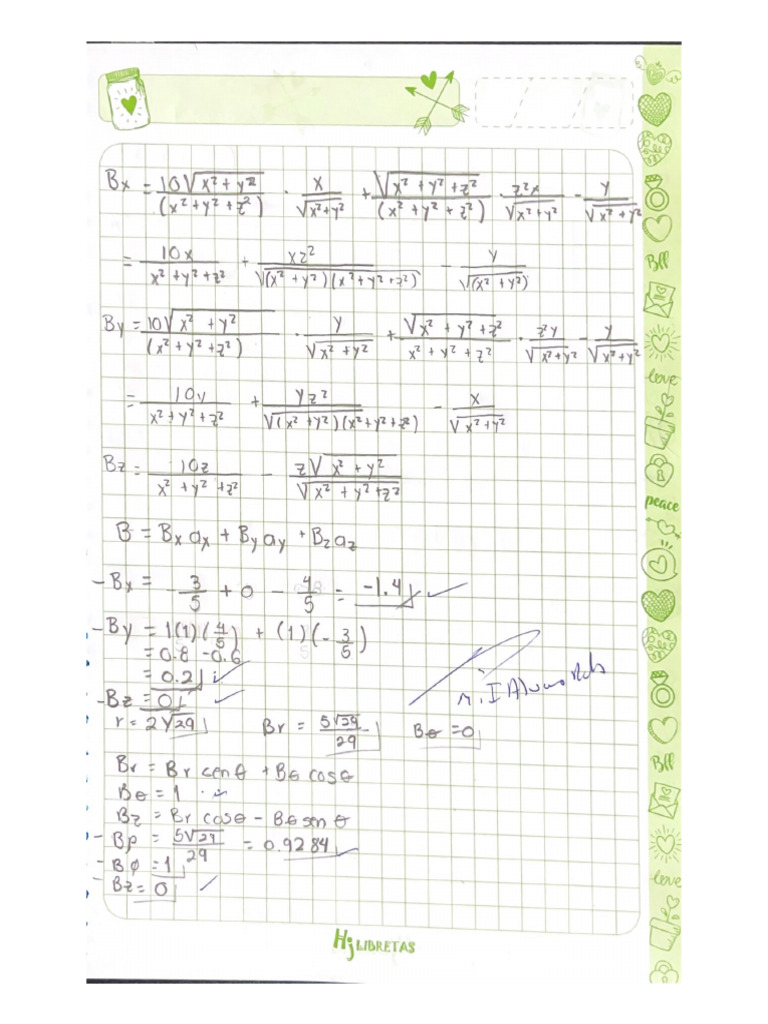 Bx = 10√(x² + y²) / (x² + y² + z²) · x / √(x² + y²) + √(x² + y² + z²) / (x² + y² + z²) · z²x / √(x² + y²) - y / √(x² + y²)
= 10x / (x² + y² + z²) + xz² / √((x² + y²)(x² + y² + z²)) - y / √(x² + y²)
By = 10√(x² + y²) / (x² + y² + z²) · y / √(x² + y²) + √(x² + y² + z²) / (x² + y² + z²) · z²y / √(x² + y²) - y / √(x² + y²)
= 10y / (x² + y² + z²) + yz² / √((x² + y²)(x² + y² + z²)) - x / √(x² + y²)
Bz = 10z / (x² + y² + z²) - z√(x² + y²) / √(x² + y² + z²)
B = Bx ax + By ay + Bz az
- Bx = - 3/5 + 0 - 4/5 = -1.4
- By = 1(1)(4/5) + (1)(-3/5)
= 0.8 - 0.6
= 0.2
- Bz = 0
r = 2√29 Br = 5√29 / 29 Bθ = 0
Br = Br senθ + Bθ cosθ
Bθ = 1
Bz = Br cosθ - Bθ sen θ
- Bρ = 5√29 / 29 = 0.9284
- BØ = 1
- Bz = 0
Hj LIBRETAS
BFF
love
peace
BFF
love